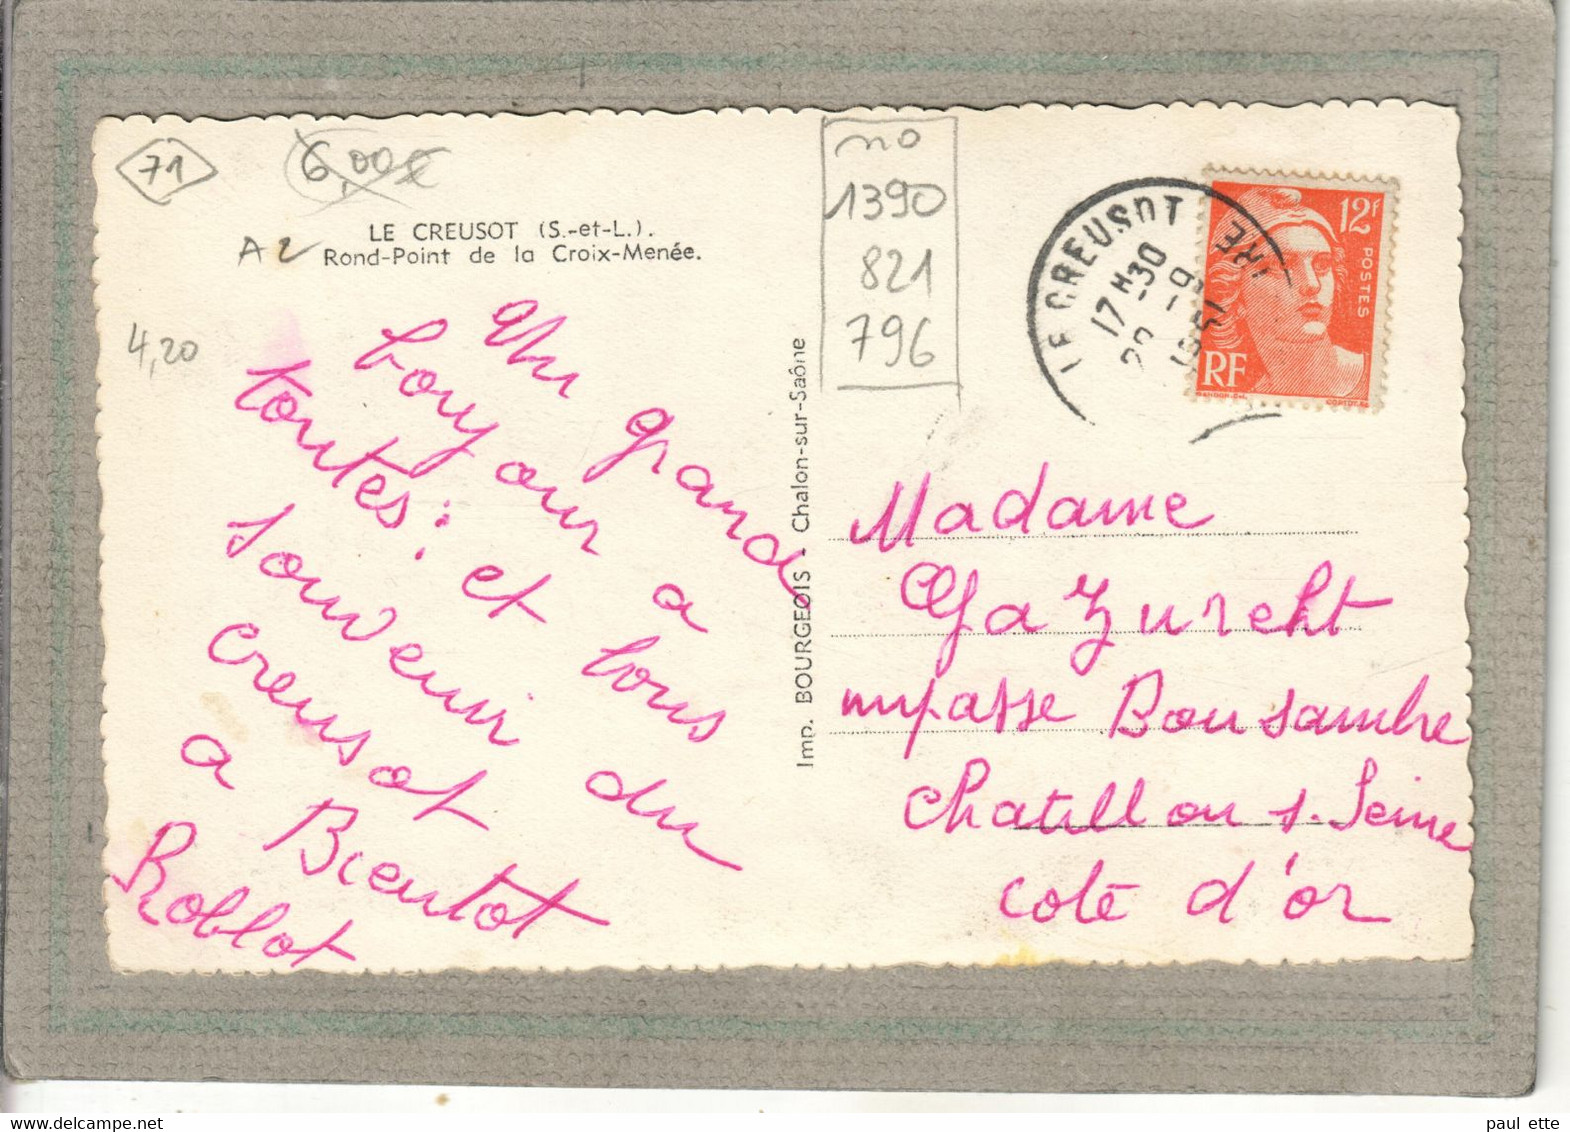 71
6,00€
LE CREUSOT (S.-et-L.).
A2
Rond-Point de la Croix-Menée.
4,20
Un grand
bonjour a
toutes: et tous
souvenir du
Creusot
a Bientot
Roblot
Imp. BOURGEOIS - Chalon-sur-Saône
no
1390
821
796
LE CREUSOT
17H30
1951
12F
POSTES
RF
GANDON-DEL
Madame
impasse Bonsambre
Chatillon s. Seine
cote d'or
paul ette